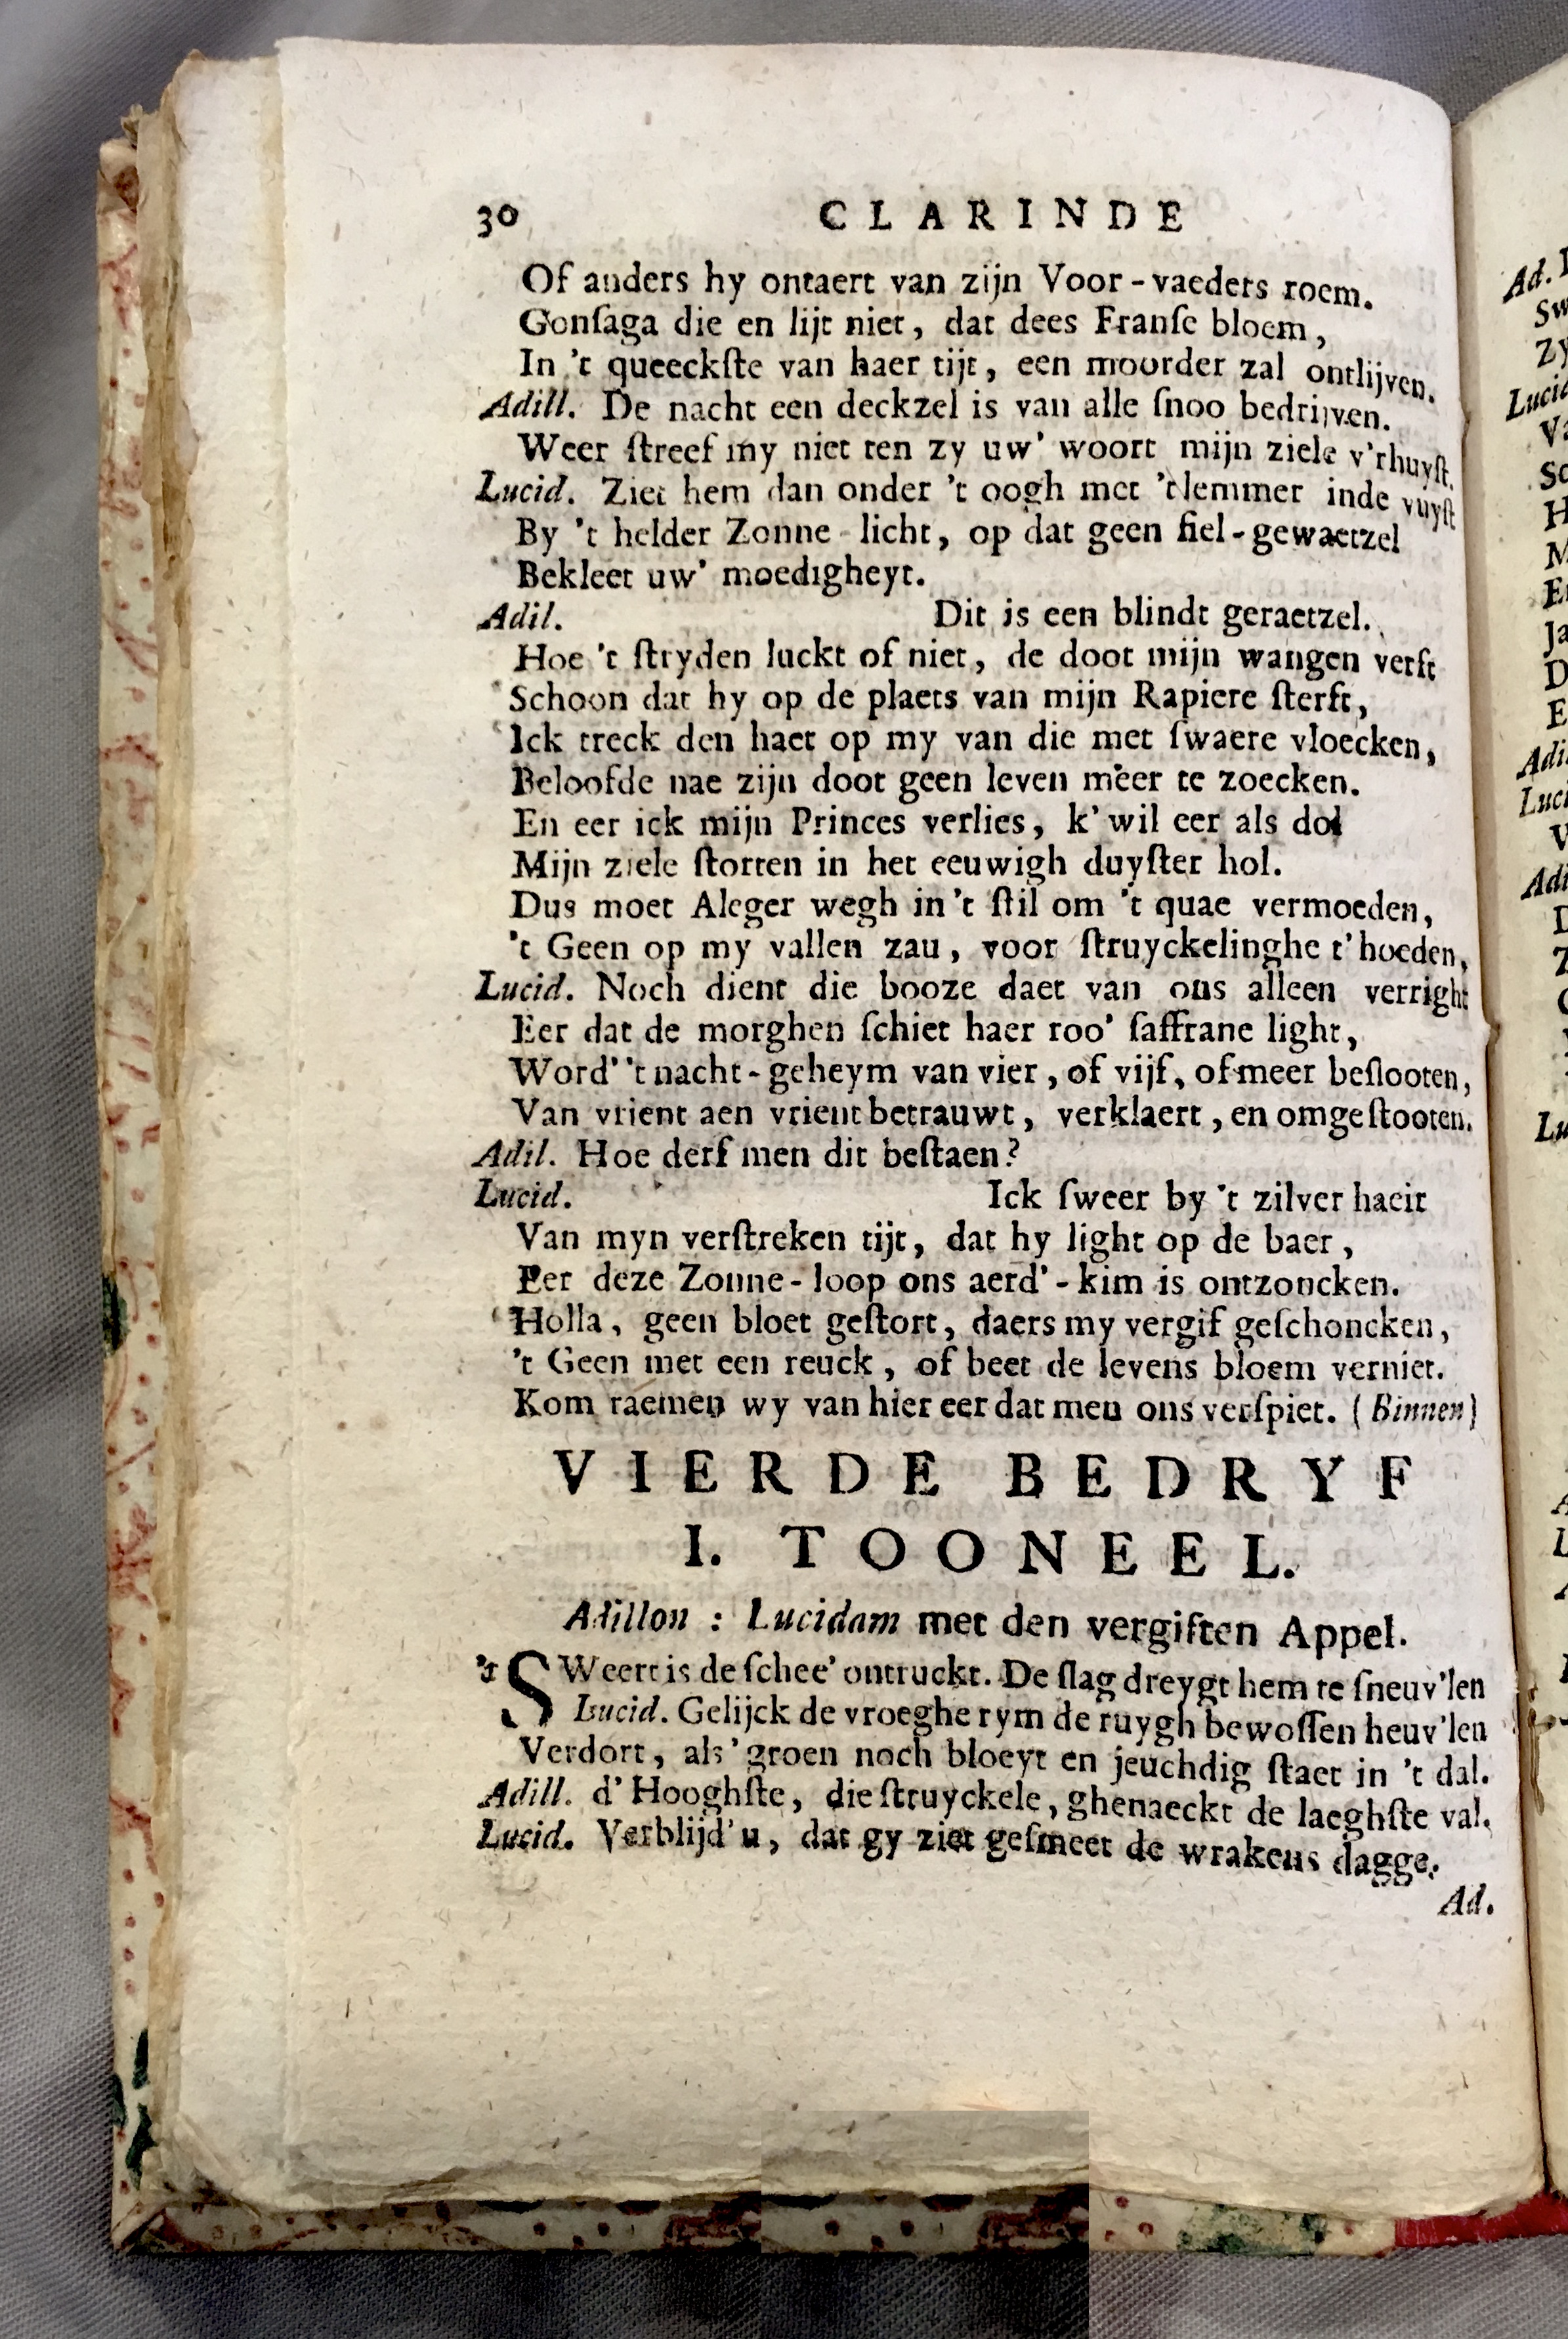 30 CLARINDE
Of anders hy ontaert van zijn Voor-vaeders roem.
Gonſaga die en lijt niet, dat dees Franſe bloem,
In 't queeckſte van haer tijt, een moorder zal ontlijven.
Adill. De nacht een deckzel is van alle ſnoo bedrijven.
Weer ſtreef my niet ten zy uw' woort mijn ziele v'rhuyſt.
Lucid. Ziet hem dan onder 't oogh met 't lemmer inde vuyſt
By 't helder Zonne-licht, op dat geen fiel-gewaetzel
Bekleet uw' moedigheyt.
Adil. Dit is een blindt geraetzel.
Hoe 't ſtryden luckt of niet, de doot mijn wangen verft
Schoon dat hy op de plaets van mijn Rapiere ſterft,
Ick treck den haet op my van die met ſwaere vloecken,
Beloofde nae zijn doot geen leven meer te zoecken.
En eer ick mijn Princes verlies, k' wil eer als dol
Mijn ziele ſtorten in het eeuwigh duyſter hol.
Dus moet Aleger wegh in 't ſtil om 't quae vermoeden,
't Geen op my vallen zau, voor ſtruyckelinghe t'hoeden,
Lucid. Noch dient die booze daet van ons alleen verright
Eer dat de morghen ſchiet haer roo' ſaffrane light,
Word' 't nacht-geheym van vier, of vijf, of meer beſlooten,
Van vrient aen vrient betrauwt, verklaert, en omgeſtooten.
Adil. Hoe derf men dit beſtaen?
Lucid. Ick ſweer by 't zilver haeir
Van myn verſtreken tijt, dat hy light op de baer,
Eer deze Zonne-loop ons aerd'-kim is ontzoncken.
Holla, geen bloet geſtort, daers my vergif geſchoncken,
't Geen met een reuck, of beet de levens bloem verniet.
Kom raemen wy van hier eer dat men ons verſpiet. (Binnen)
VIERDE BEDRYF
I. TOONEEL.
Adillon : Lucidam met den vergiften Appel.
't SWeert is de ſchee' ontruckt. De ſlag dreygt hem te ſneuv'len
Lucid. Gelijck de vroeghe rym de ruygh bewoſſen heuv'len
Verdort, als' groen noch bloeyt en jeuchdig ſtaet in 't dal.
Adill. d' Hooghſte, die ſtruyckele, ghenaeckt de laeghſte val.
Lucid. Verblijd' u, dat gy ziet geſmeet de wrakens dagge.
Ad.